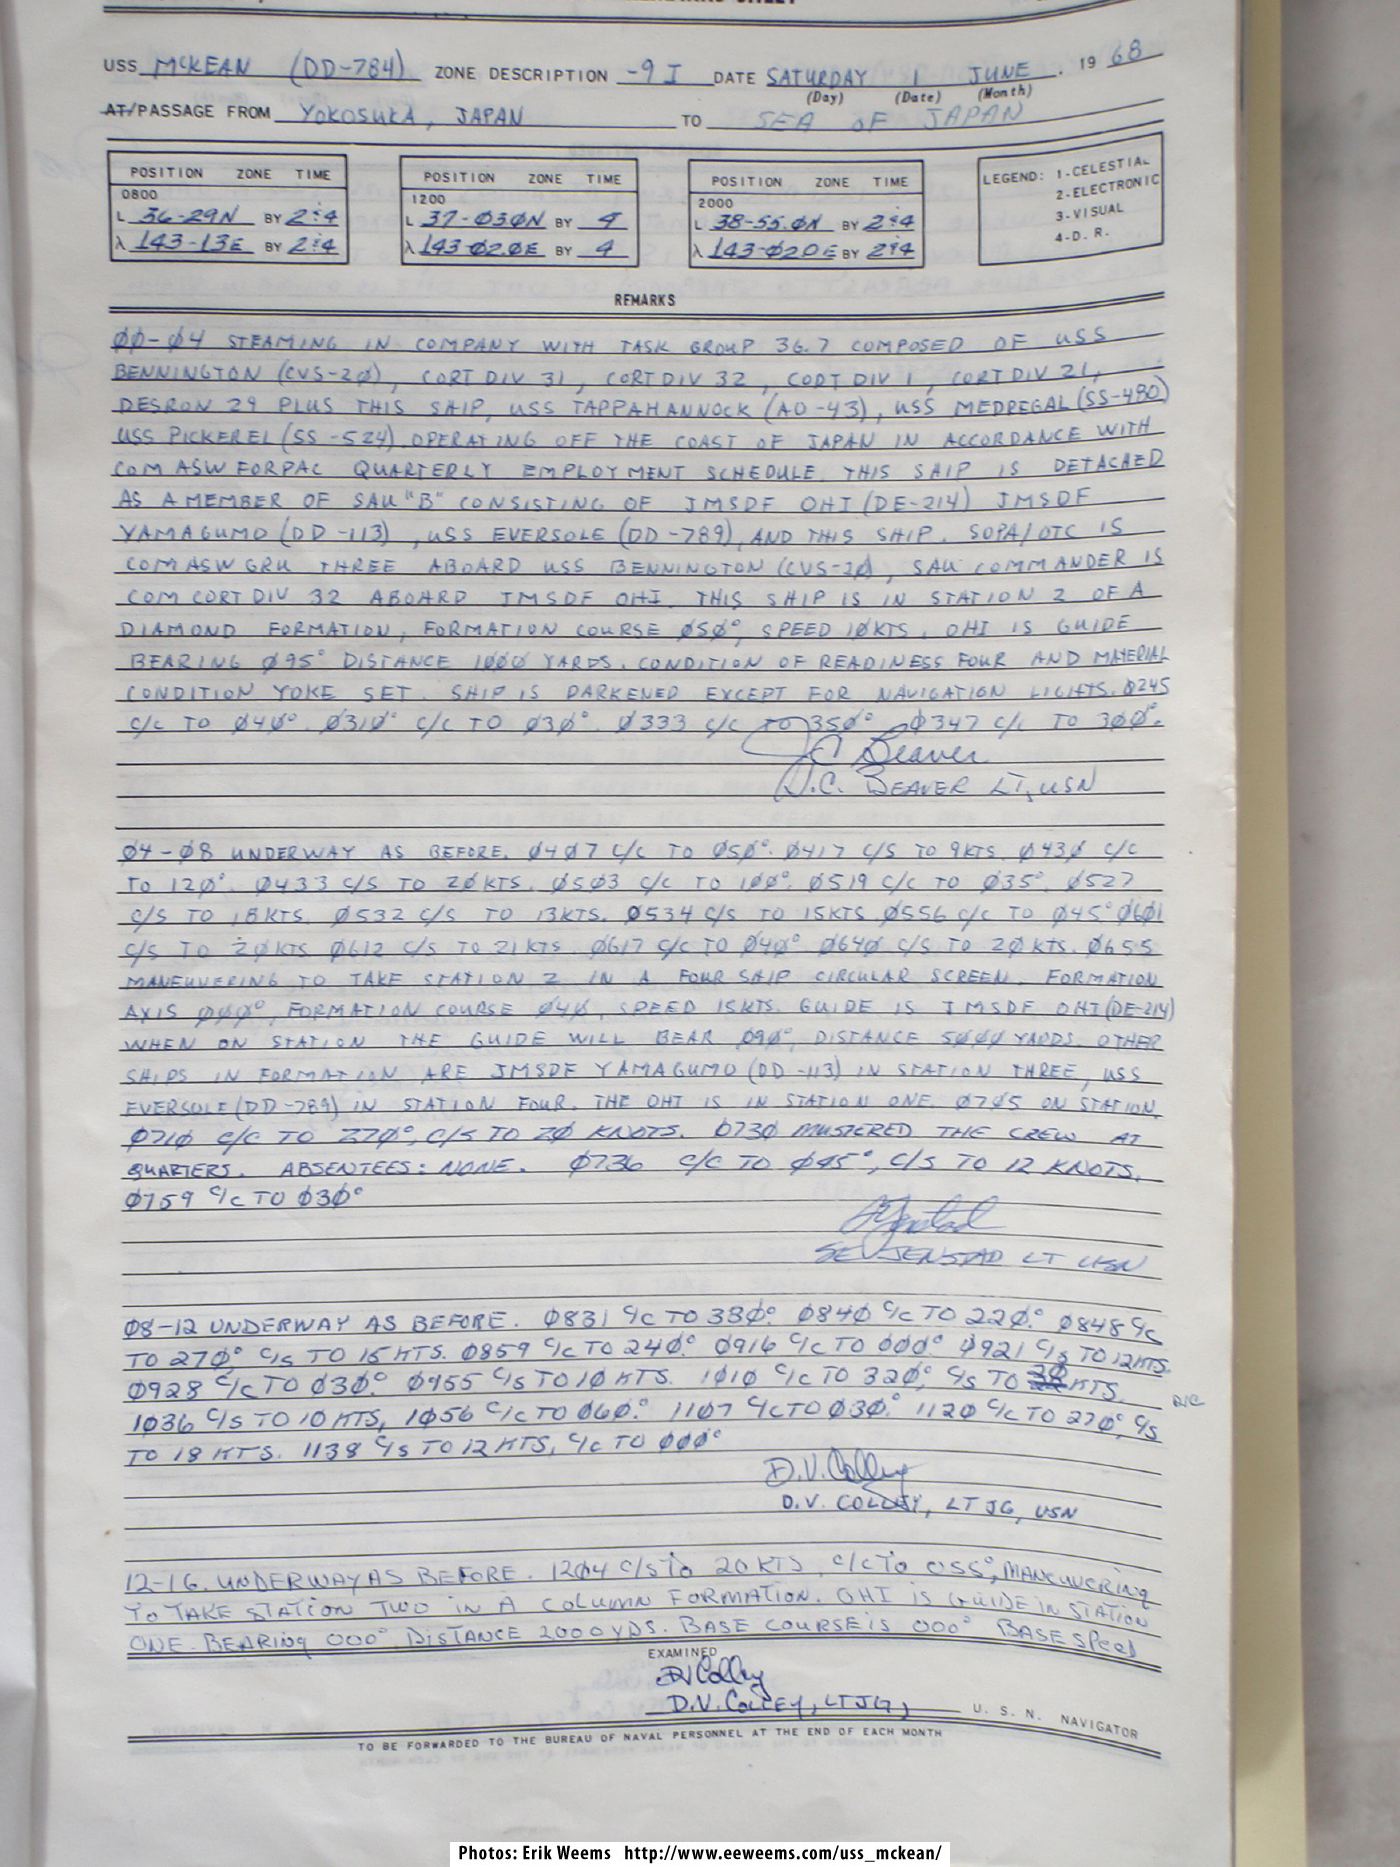 USS MCKEAN (DD-784) ZONE DESCRIPTION -9I DATE SATURDAY 1 JUNE, 19 68
(Day) (Date) (Month)
AT/PASSAGE FROM YOKOSUKA, JAPAN TO SEA OF JAPAN
POSITION ZONE TIME
0800
L 36-29N BY 2&4
λ 143-13E BY 2&4
POSITION ZONE TIME
1200
L 37-03.0N BY 4
λ 143-02.0E BY 4
POSITION ZONE TIME
2000
L 38-55.0N BY 2&4
λ 143-02.0E BY 2&4
LEGEND: 1-CELESTIAL
2-ELECTRONIC
3-VISUAL
4-D. R.
REMARKS
00-04 STEAMING IN COMPANY WITH TASK GROUP 36.7 COMPOSED OF USS
BENNINGTON (CVS-20), CORT DIV 31, CORT DIV 32, CORT DIV 1, CORT DIV 21,
DESRON 29 PLUS THIS SHIP, USS TAPPAHANNOCK (AO-43), USS MEDREGAL (SS-480)
USS PICKEREL (SS-524) OPERATING OFF THE COAST OF JAPAN IN ACCORDANCE WITH
COM ASW FORPAC QUARTERLY EMPLOYMENT SCHEDULE. THIS SHIP IS DETACHED
AS A MEMBER OF SAU "B" CONSISTING OF JMSDF OHI (DE-214) JMSDF
YAMAGUMO (DD-113), USS EVERSOLE (DD-789), AND THIS SHIP. SOPA/OTC IS
COM ASW GRU THREE ABOARD USS BENNINGTON (CVS-20), SAU COMMANDER IS
COM CORT DIV 32 ABOARD JMSDF OHI. THIS SHIP IS IN STATION 2 OF A
DIAMOND FORMATION, FORMATION COURSE 050°, SPEED 10KTS. OHI IS GUIDE
BEARING 095° DISTANCE 1000 YARDS. CONDITION OF READINESS FOUR AND MATERIAL
CONDITION YOKE SET. SHIP IS DARKENED EXCEPT FOR NAVIGATION LIGHTS. 0245
C/C TO 040°. 0310° C/C TO 030°. 0333 C/C TO 350°. 0347 C/C TO 300°.
J.C. Beaver
J.C. BEAVER LT, USN
04-08 UNDERWAY AS BEFORE. 0407 C/C TO 050°. 0417 C/S TO 9KTS. 0430 C/C
TO 120°. 0433 C/S TO 20KTS. 0503 C/C TO 100°. 0519 C/C TO 035°. 0527
C/S TO 18KTS. 0532 C/S TO 13KTS. 0534 C/S TO 15KTS. 0556 C/C TO 045° 0601
C/S TO 20KTS 0612 C/S TO 21KTS. 0617 C/C TO 040° 0640 C/S TO 20KTS. 0655
MANEUVERING TO TAKE STATION 2 IN A FOUR SHIP CIRCULAR SCREEN. FORMATION
AXIS 000°, FORMATION COURSE 040, SPEED 15KTS. GUIDE IS JMSDF OHI (DE-214)
WHEN ON STATION THE GUIDE WILL BEAR 090°, DISTANCE 5000 YARDS. OTHER
SHIPS IN FORMATION ARE JMSDF YAMAGUMO (DD-113) IN STATION THREE, USS
EVERSOLE (DD-789) IN STATION FOUR. THE OHI IS IN STATION ONE. 0705 ON STATION.
0710 C/C TO 270°, C/S TO 20 KNOTS. 0730 MUSTERED THE CREW AT
QUARTERS. ABSENTEES: NONE. 0736 C/C TO 045°, C/S TO 12 KNOTS.
0759 C/C TO 030°
LT USN
08-12 UNDERWAY AS BEFORE. 0831 C/C TO 330°. 0840 C/C TO 220°. 0848 C/C
TO 270°. C/S TO 15 KTS. 0859 C/C TO 240°. 0916 C/C TO 000°. 0921 C/S TO 12KTS.
0928 C/C TO 030°. 0955 C/S TO 10 KTS. 1010 C/C TO 320°, C/S TO KTS.
1036 C/S TO 10 KTS, 1056 C/C TO 060°. 1107 C/C TO 030°. 1120 C/C TO 270°, C/S
TO 18 KTS. 1138 C/S TO 12 KTS, C/C TO 000°
D.V. Colley
D.V. COLLEY, LTJG, USN
12-16. UNDERWAY AS BEFORE. 1204 C/S TO 20 KTS, C/C TO 055°, MANEUVERING
TO TAKE STATION TWO IN A COLUMN FORMATION. OHI IS GUIDE IN STATION
ONE. BEARING 000° DISTANCE 2000 YDS. BASE COURSE IS 000° BASE SPEED
EXAMINED
DV Colley
D.V. COLLEY, LTJG, U. S. N. NAVIGATOR
TO BE FORWARDED TO THE BUREAU OF NAVAL PERSONNEL AT THE END OF EACH MONTH
Photos: Erik Weems http://www.eeweems.com/uss_mckean/